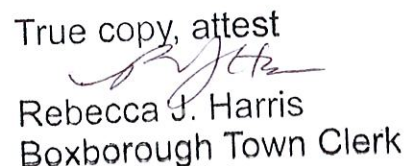 True copy, attest
Rebecca J. Harris
Boxborough Town Clerk